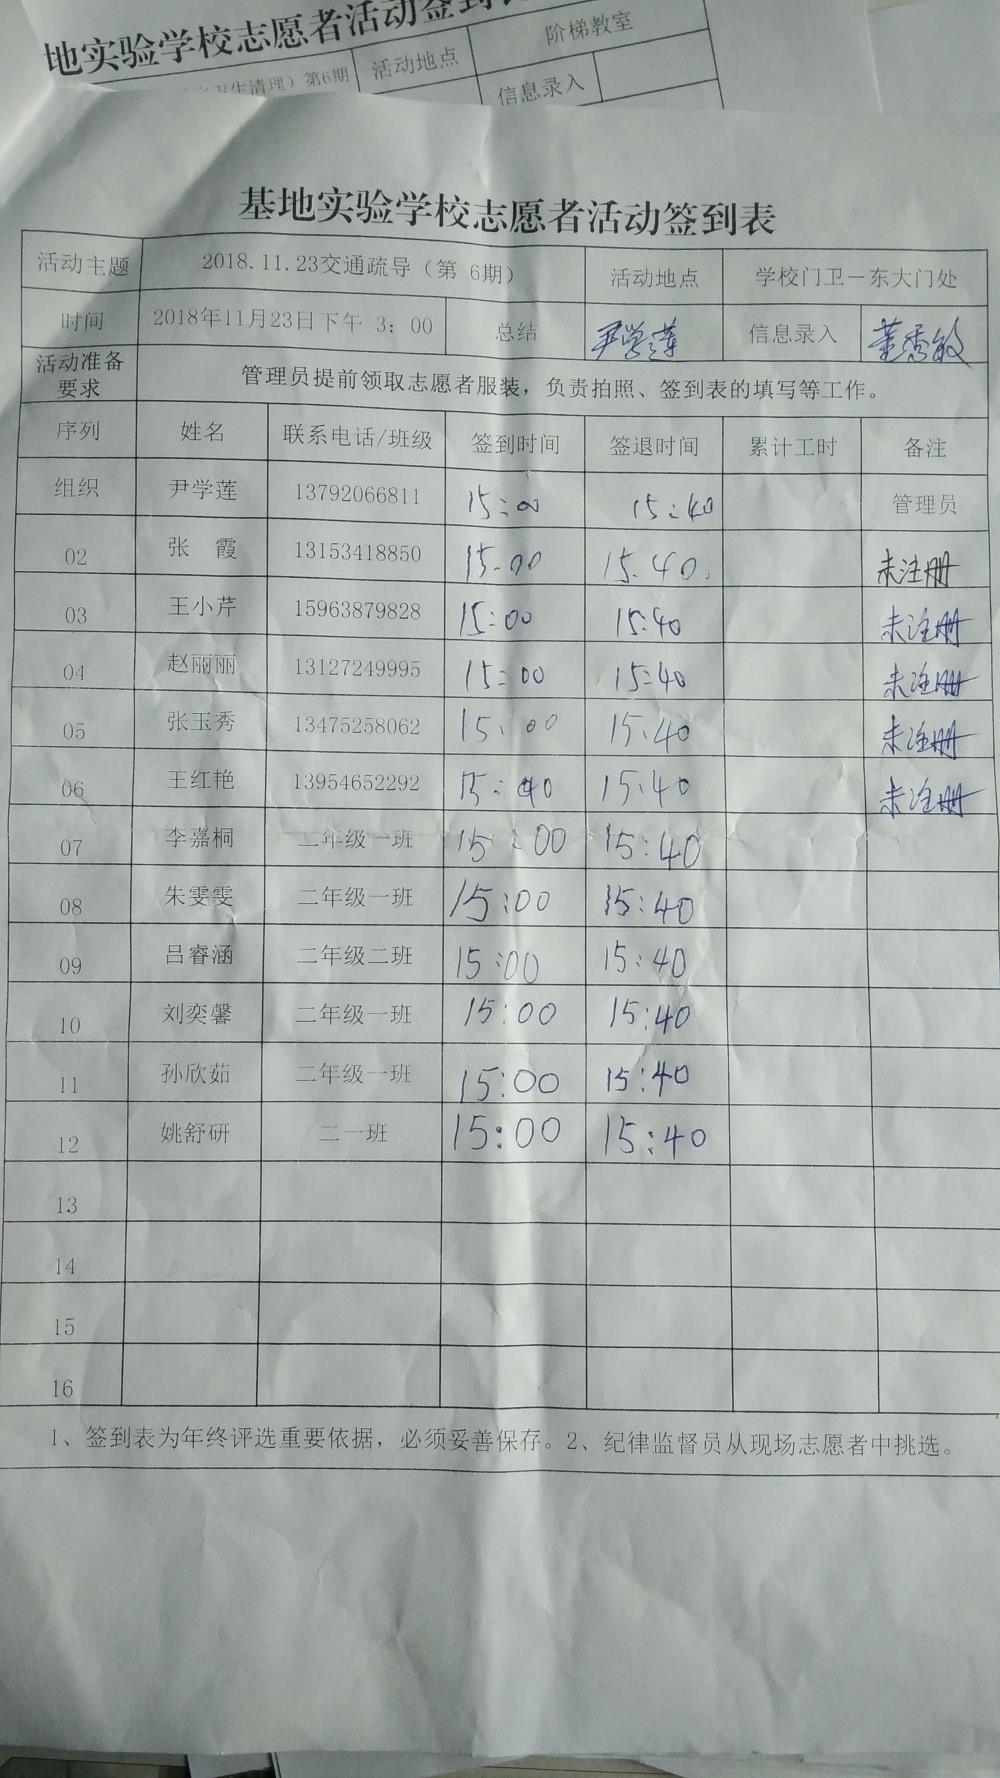 地实验学校志愿者活动签到
卫生清理）第6期 活动地点 阶梯教室
信息录入
基地实验学校志愿者活动签到表
活动主题 2018.11.23交通疏导（第 6期） 活动地点 学校门卫－东大门处
时间 2018年11月23日下午 3：00 总结 尹学莲 信息录入 董秀敏
活动准备要求 管理员提前领取志愿者服装，负责拍照、签到表的填写等工作。
序列 姓名 联系电话/班级 签到时间 签退时间 累计工时 备注
组织 尹学莲 13792066811 15:00 15:40 管理员
02 张 霞 13153418850 15.00 15.40. 未注册
03 王小芹 15963879828 15:00 15:40 未注册
04 赵丽丽 13127249995 15:00 15:40 未注册
05 张玉秀 13475258062 15:00 15:40 未注册
06 王红艳 13954652292 15: 15:40 未注册
07 李嘉桐 二年级一班 15:00 15:40
08 朱雯雯 二年级一班 15:00 15:40
09 吕睿涵 二年级二班 15:00 15:40
10 刘奕馨 二年级一班 15:00 15:40
11 孙欣茹 二年级一班 15:00 15:40
12 姚舒研 二一班 15:00 15:40
13
14
15
16
1、签到表为年终评选重要依据，必须妥善保存。2、纪律监督员从现场志愿者中挑选。